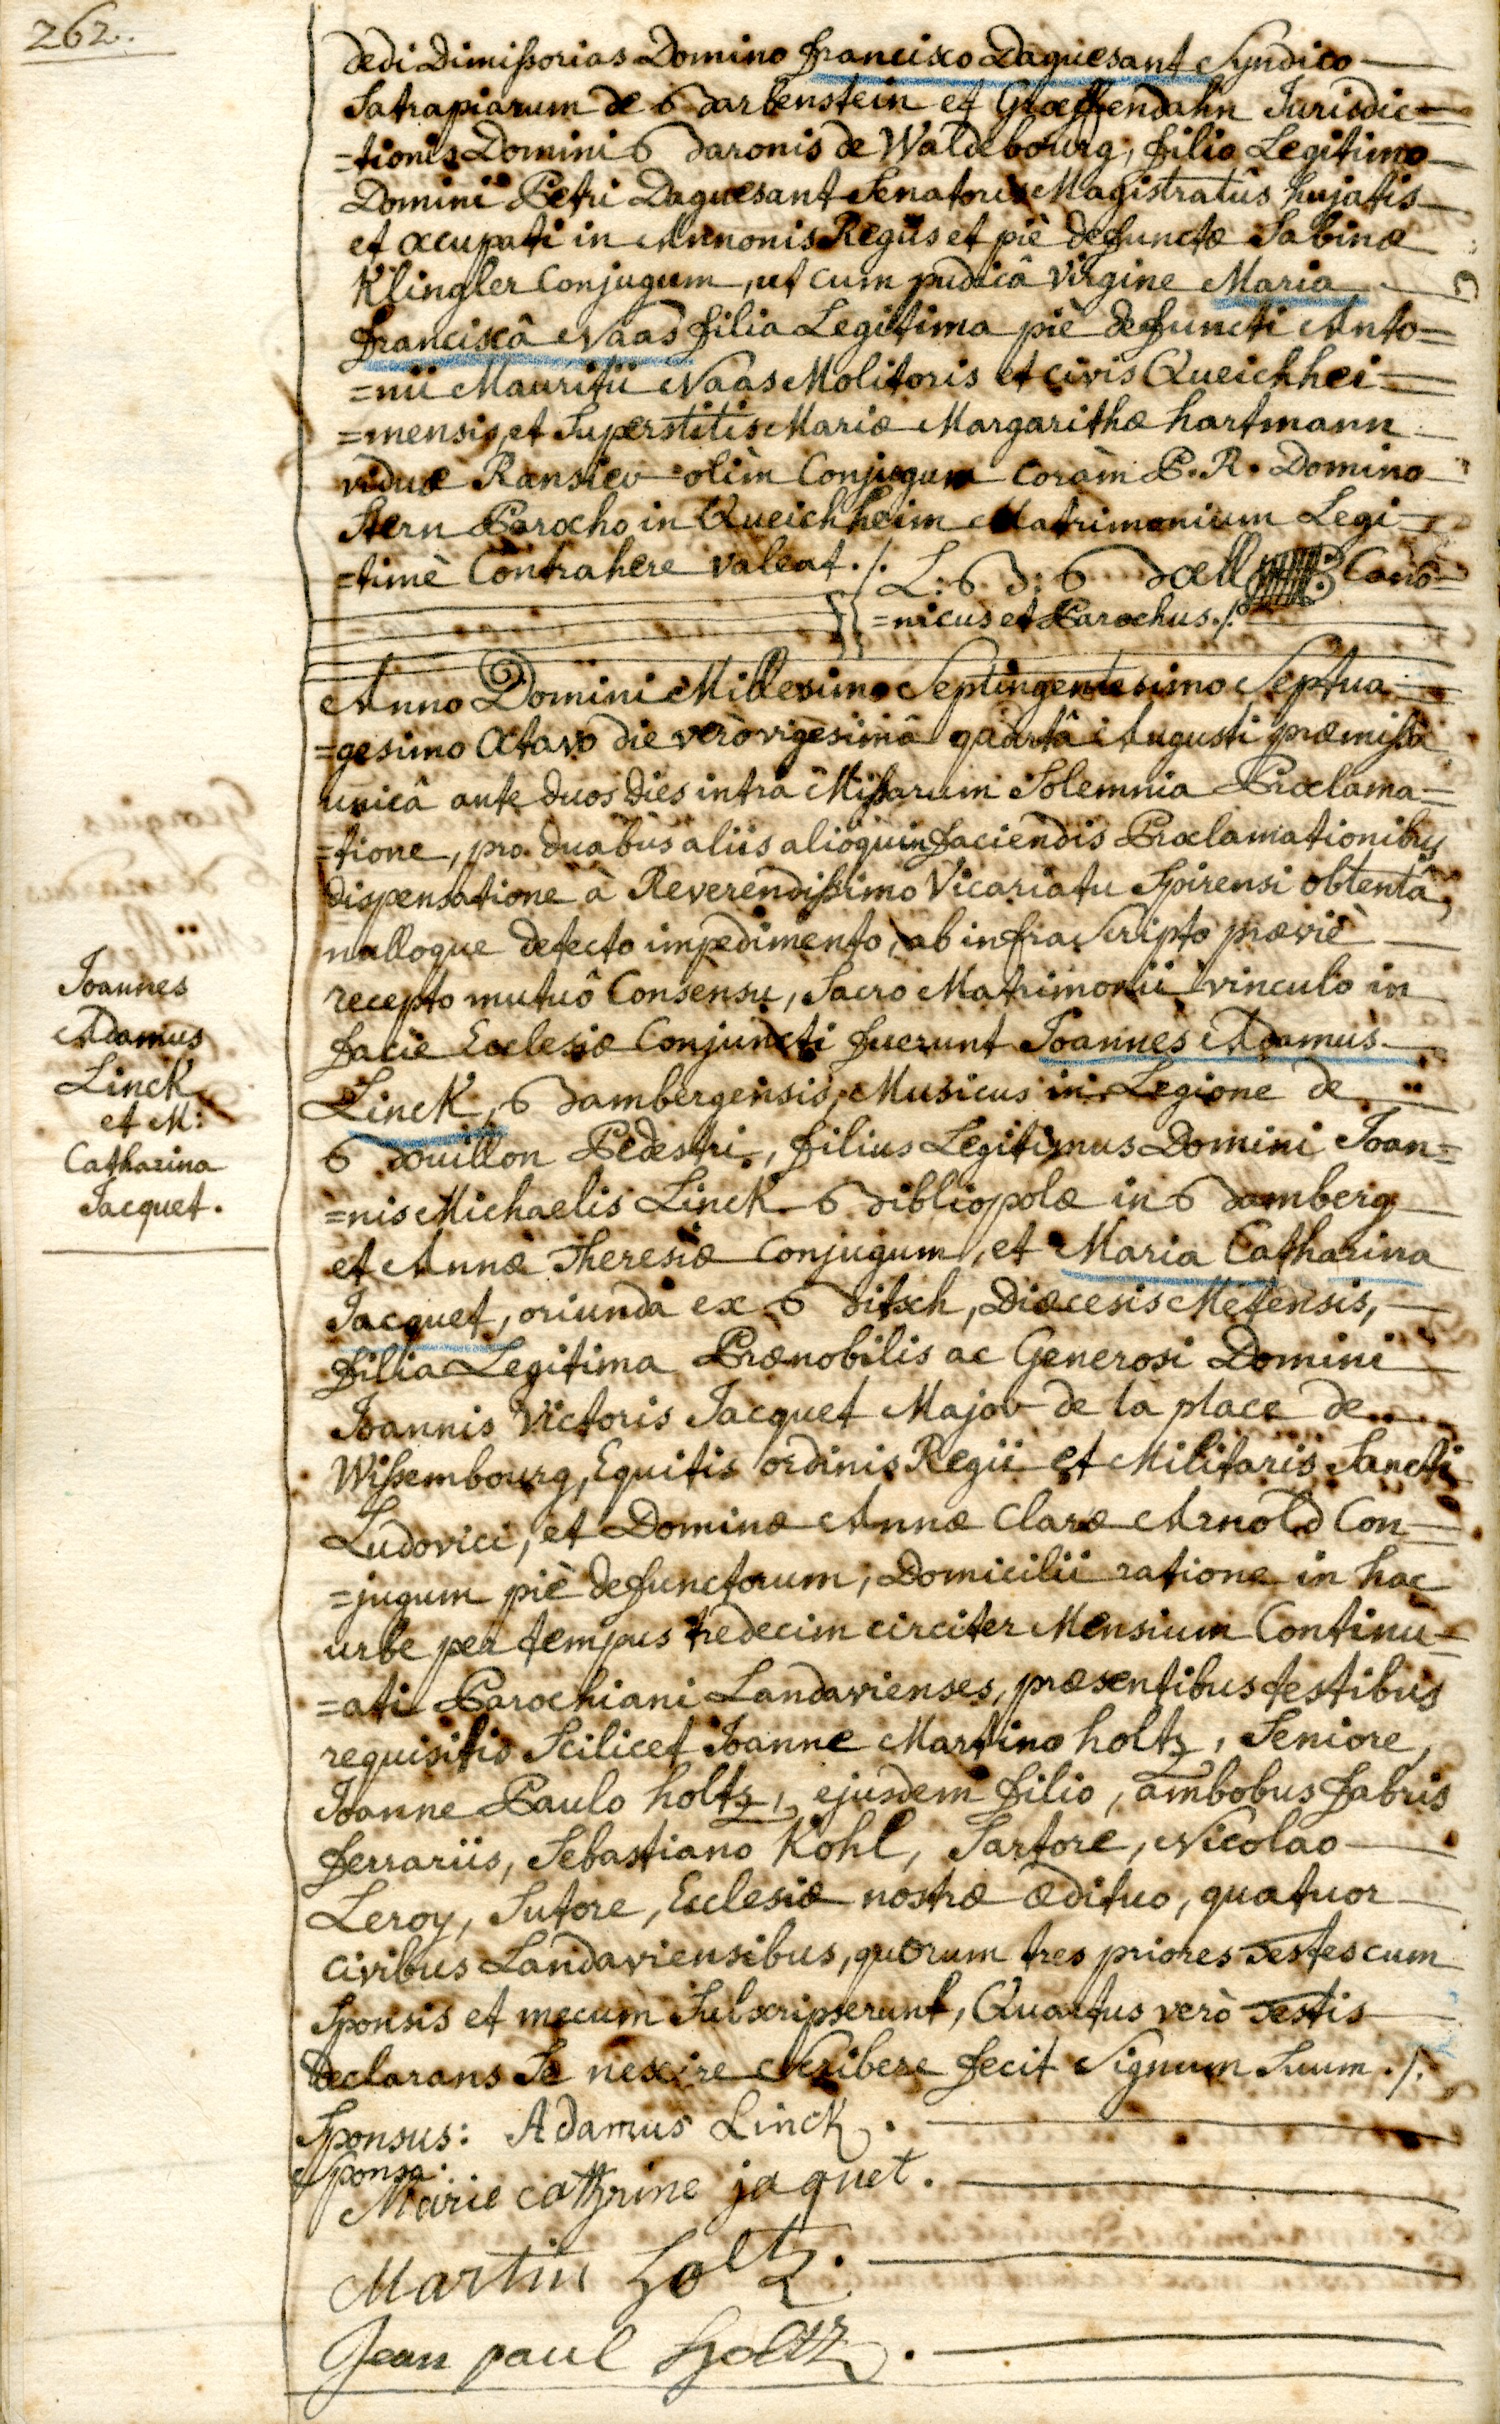 262.
dedi Dimissorias Domino Francisco Daguesant Syndico
Satrapiarum de Barbenstein et Græffendahn Jurisdic=
=tionis Domini Baronis de Waldebourg, filio Legitimo
Domini Petri Daguesant Senatoris Magistratûs hujatis
et occupati in Annonis Regiis et piè defunctæ Sabinæ
Klingler Conjugum, ut cum pudicâ virgine Maria
Franciscâ Naas filia Legitima piè defuncti Anto=
=nii Mauritii Naas Molitoris et civis Queichhei=
=mensis, et Superstitis Mariæ Margarithæ hartmann
viduæ Ransiev olìm Conjugum coràm P. R. Domino
Stern Parocho in Queichheim Matrimonium Legi=
=timè Contrahere valeat ./.
L: B: Bœll Cano=
=nicus et Parochus ./.
Anno Domini Millesimo Septingentesimo Septua=
=gesimo Octavo die verò vigesimâ quartâ Augusti præmissâ
unicâ ante duos dies intra Missarum Solemnia Proclama=
=tione, pro duabus aliis alioquin faciendis Proclamationibus
dispensatione à Reverendissimo Vicariatu Spirensi obtentâ,
nulloque detecto impedimento, ab infra Scripto præviè
recepto mutuô Consensu, Sacro Matrimonii vinculo in
facie Ecclesiæ Conjuncti fuerunt Joannes Adamus
Linck, Bambergensis, Musicus in Legione de
Bouillon Pedestri, filius Legitimus Domini Joan=
=nis Michaelis Linck Bibliopolæ in Bamberg
et Annæ Theresiæ Conjugum, et Maria Catharina
Jacquet, oriunda ex Bitsch, Diœcesis Metensis,
filia Legitima Prænobilis ac Generosi Domini
Joannis Victoris Jacquet Major de la place de
Wissembourg, Equitis ordinis Regii et Militaris Sancti
Ludovici, et Dominæ Annæ Claræ Arnold Con=
=jugum piè defunctorum, Domicilii ratione in hac
urbe per tempus tredecim circiter Mensium Continu=
=ati Parochiani Landavienses, præsentibus testibus
requisitis Scilicet Joanne Martino holtz, Seniore,
Joanne Paulo holtz, ejusdem filio, ambobus fabris
ferrariis, Sebastiano Kohl, Sartore, Nicolao
Leroy, Sutore, Ecclesiæ nostræ ædituo, quatuor
civibus Landaviensibus, quorum tres priores Testes cum
Sponsis et mecum Subscripserunt, Quartus verò Testis
declarans Se nescire Scribere fecit Signum Suum ./.
Sponsus: Adamus Linck.
Sponsa: Marie cattrine jaquet.
Martin Holtz.
Jean paul Holtz.
Joannes
Adamus
Linck
et M:
Catharina
Jacquet.